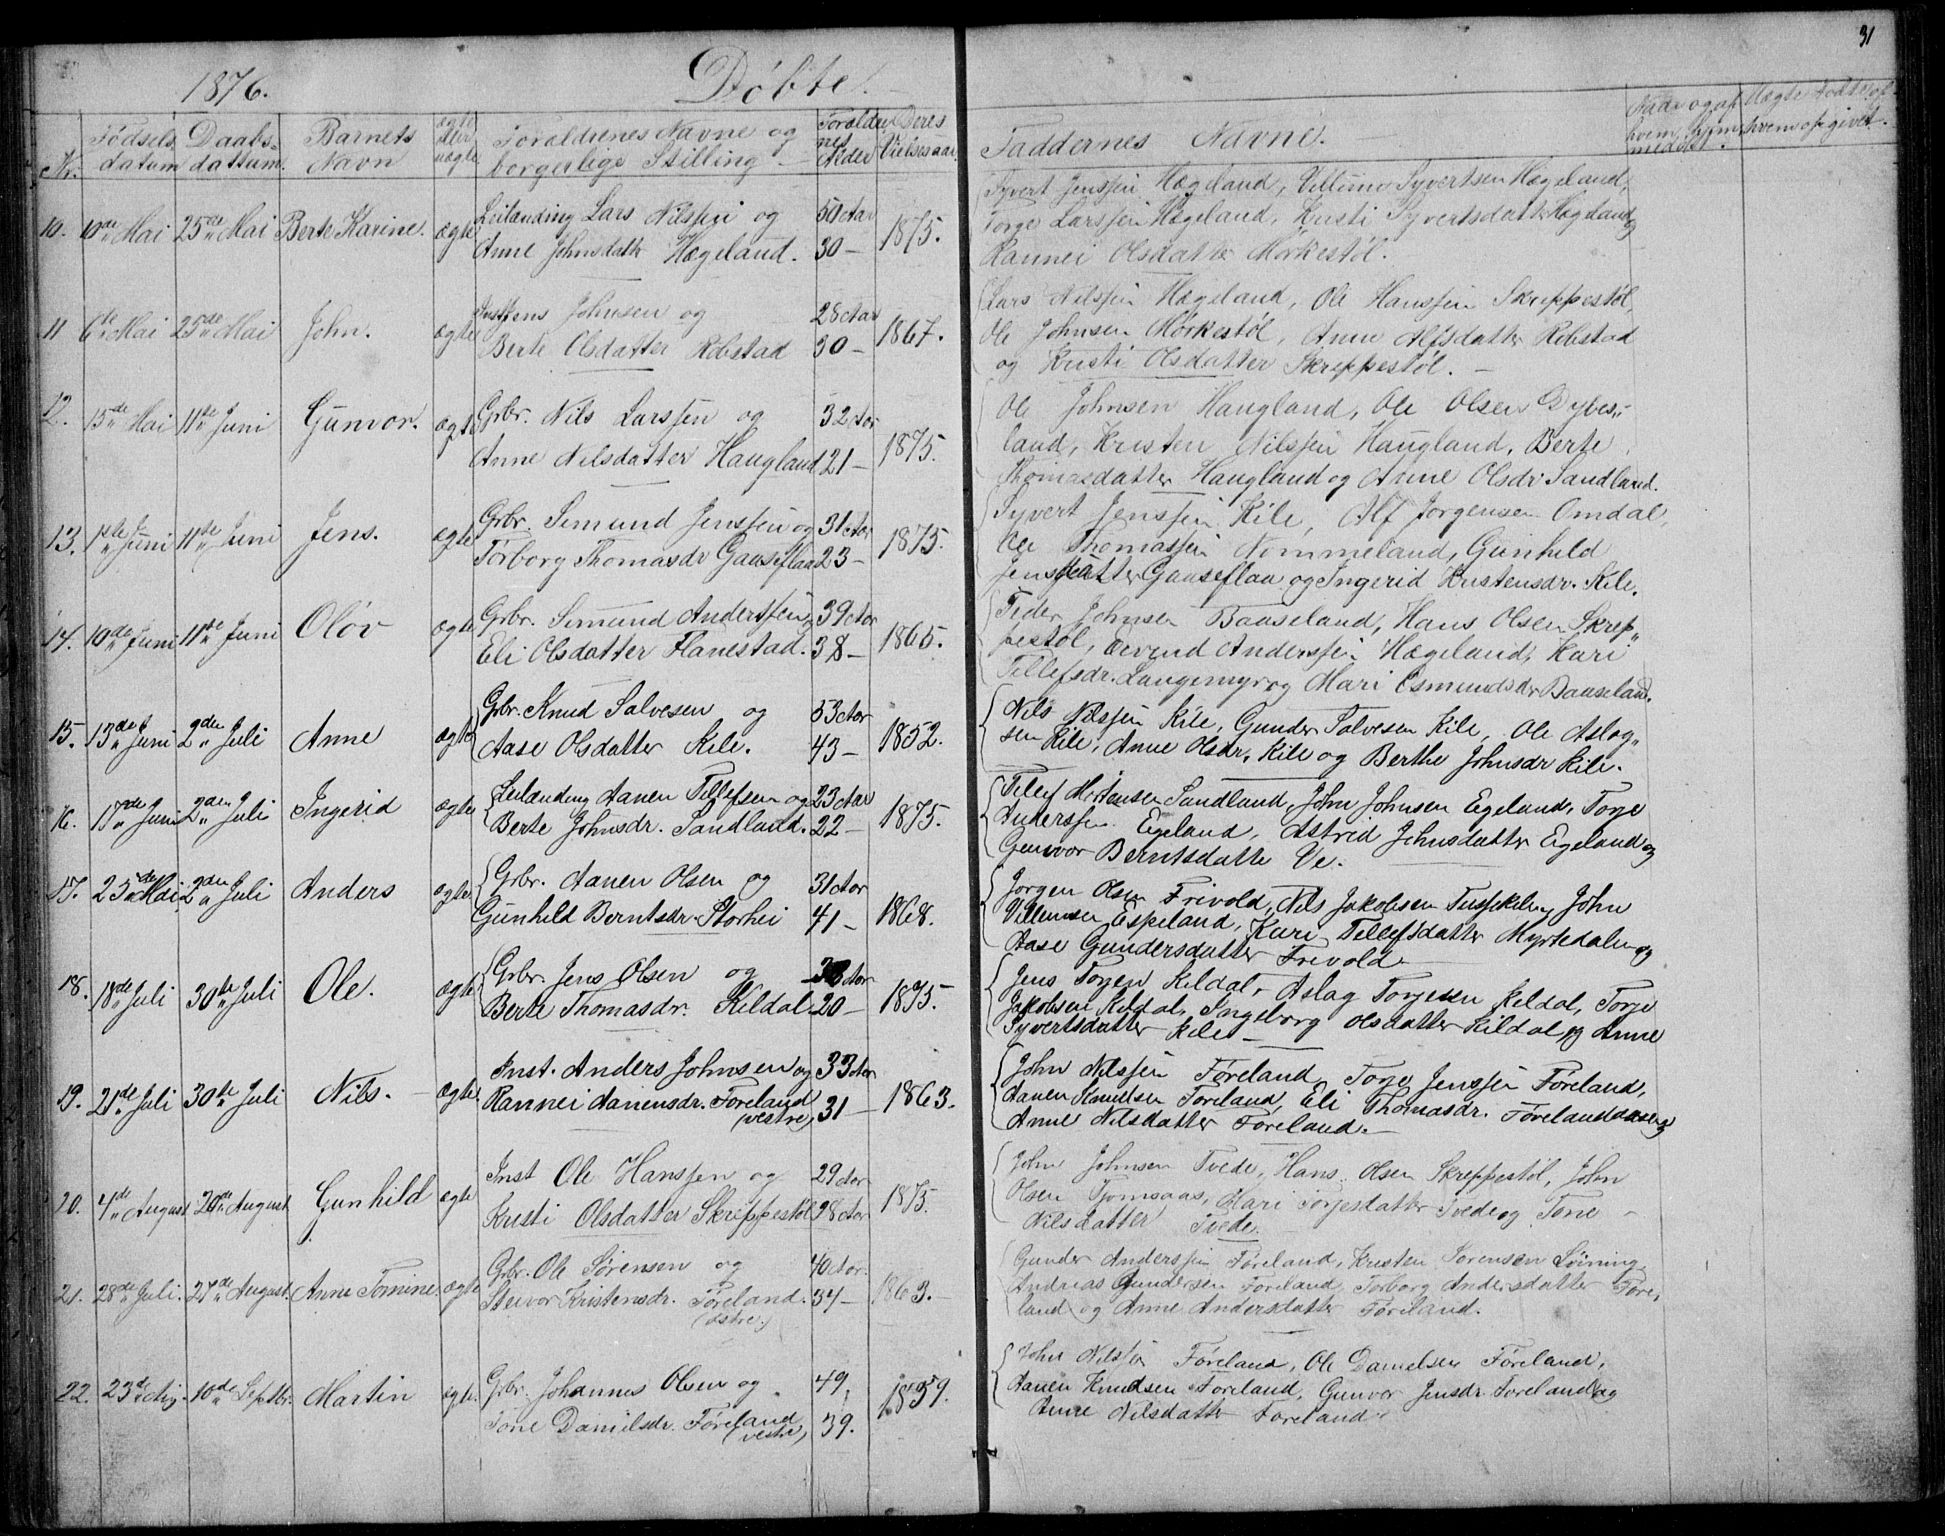 31
1876. Døbte.
Nr. Fødsels datum Daabs dattum. Barnets Navn ægte eller uægte Forældrenes Navne og borgerlige Stilling Forældrenes Alder Deres Vielsesaar Faddernes Navne.
10. 10de Mai 25de Mai Berte Karine. ægte Leilænding Lars Nilssen og 50 Aar 1875. Syvert Jenssen Hægeland, Villum Syvertsen Hægeland,
Anne Johnsdatt Hægeland. 30 – Torge Larssen Hægeland, Kristi Syvertsdatt Hægeland og
Rannei Olsdatter Mørkestøl.
11 6te Mai 25de Mai John. ægte Inst Jens Johnsen og 28 Aar 1867. Lars Nilssen Hægeland, Ole Hanssen Skreppestøl,
Berte Olsdatter Robstad 30 – Ole Johnsen Mørkestøl, Anne Alfsdatter Robstad
og Kristi Olsdatter Skreppestøl. –
12. 15de Mai 11te Juni Gunvor. ægte Grbr. Nils Larssen og 32 Aar 1875. Ole Johnsen Haugland, Ole Olsen Dybes-
Anne Nilsdatter Haugland 21 – land, Kristen Nilssen Haugland, Berte
Thomasdatter Haugland og Anne Olsdr Sandland.
13. 1ste Juni 11te Juni Jens. ægte Grbr. Simund Jenssen og 31 Aar 1875. Syvert Jenssen Kile, Alf Jørgensen Omdal,
Torborg Thomasdr Gaaseflaa 23 – Ole Thomassen Nommeland, Gunhild
Jensdatter Gaaseflaa og Ingerid Kristensdr. Kile.
14. 10de Juni 11te Juni Oløv ægte Grbr. Simund Anderssen og 39 Aar 1865. Peder Johnsen Baaseland, Hans Olsen Skrep-
Eli Olsdatter Hanestad. 38 – pestøl, Eivind Anderssen Hægeland, Kari
Tellefsdr. Langemyr og Mari Esmundsdr Baaseland.
15. 13de Juni 2den Juli Anne ægte Grbr. Knud Salvesen og 53 Aar 1852. Nils Nilssen Kile, Gunder Salvesen Kile, Ole Aslag-
Aase Olsdatter Kile. 43 – sen Kile, Anne Olsdr. Kile og Berthe Johnsdr Kile.
16. 17de Juni 2den Juli Ingerid ægte Leilænding Aanen Tellefsen og 23 Aar 1875. Tellef Mortensen Sandland, John Johnsen Egeland, Torje
Berte Johnsdr. Sandland. 22 – Anderssen Egeland, Astrid Johnsdatter Egeland og
Gunvor Berntsdatte Ve.
17. 25de Mai 2den Juli Anders ægte Grbr. Aanen Olsen og 31 Aar 1868. Jørgen Olsen Frivold, Nils Jakobsen Tussekilen, John
Gunhild Berntsdr. Storhei 41 – Villumsen Espeland, Kari Tellefsdatter Myrtedalen og
Aase Gundersdatter Frivold
18. 18de Juli 30te Juli Ole. ægte Grbr. Jens Olsen og 38 Aar 1875. Jens Torjen Kildal, Aslag Torjesen Kildal, Torje
Berte Thomasdr. Kildal 20 – Jakobsen Kildal, Ingeborg Olsdatter Kildal og Anne
Syvertsdatter Kile –
19. 21de Juli 30te Juli Nils. ægte Inst. Anders Johnsen og 33 Aar 1863. John Nilssen Føreland, Torje Jenssen Føreland,
Rannei Aanensdr. Føreland (vestre) 31 – Aanen Knudsen Føreland, Eli Thomasdr. Førelandaasen og
Anne Nilsdatter Føreland. –
20. 4de August 20de August Gunhild ægte Inst Ole Hanssen og 29 Aar 1875. John Johnsen Tvede, Hans Olsen Skreppestøl, John
Kristi Olsdatter Skreppestøl 28 Aar Olsen Tjomsaas, Mari Torjesdatter Tvede og Tone
Nilsdatter Tvede.
21. 28de Juli. 27de August. Anne Tomine. ægte Grbr. Ole Sørensen og 40 Aar. 1863. – Gunder Anderssen Føreland, Kristen Sørensen Løining
Steivor Kristensdr. Føreland. (østre.) 34 – Andreas Gundersen Føreland, Torborg Andersdatter Føre-
land og Anne Andersdatter Føreland.
22. 23de Aug. 10de Septbr. Martin ægte. Grbr. Johannes Olsen og 49. 1859. John Nilssen Føreland, Ole Danielsen Føreland,
Tone Danielsdr. Føreland (vestre) 39. Aanen Knudsen Føreland, Gunvor Jensdr Føreland og
Anne Nilsdatte Føreland